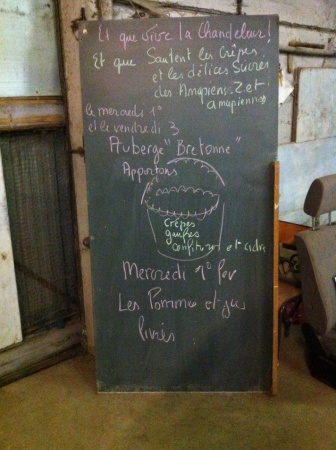 Et que vive la Chandeleur!
Et que Sautent les Crêpes,
et les délices Sucrés
des Amapiens.2et
amapiennes
le mercredi 1°
et le vendredi 3
Auberge "Bretonne"
Apportons
Crêpes
gaufres
confitures et cidre
Mercredi 1° fev
Les Pommes et jus
livrés